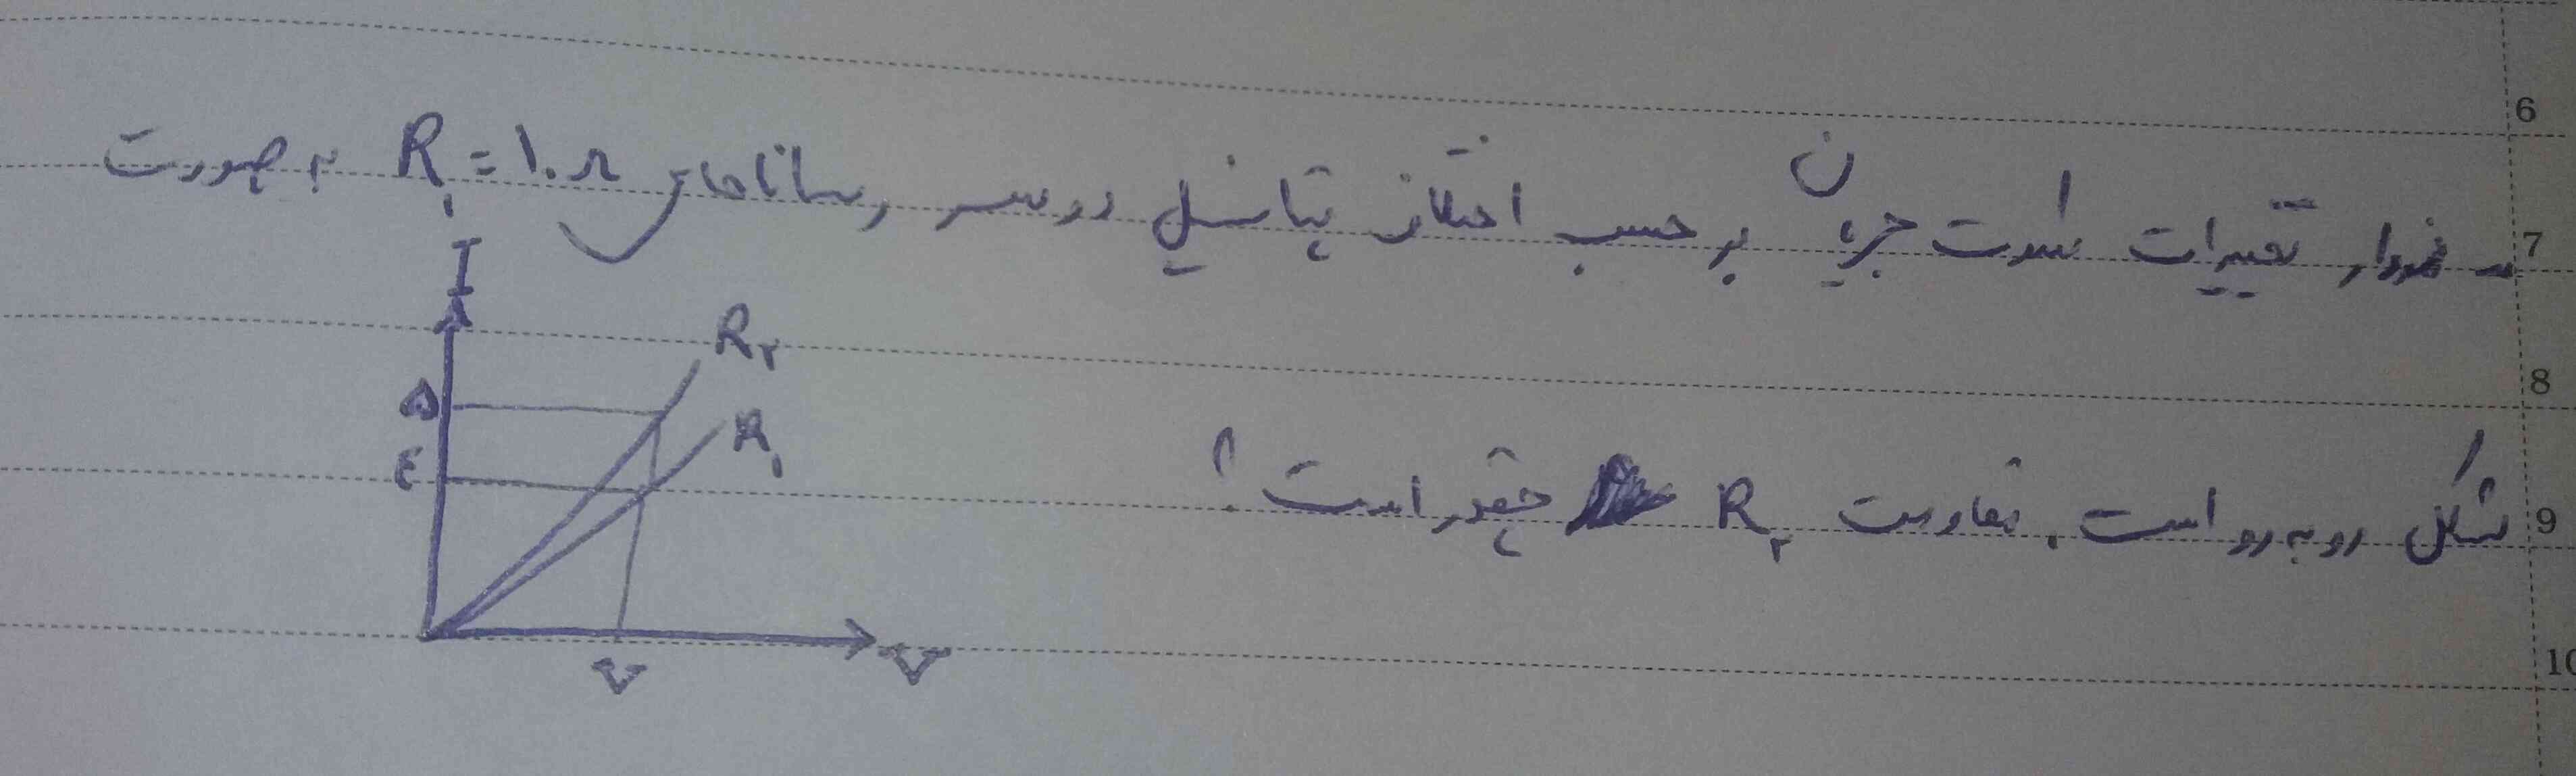 نمودار تغییرات شدت جریان بر حسب اختلاف پتانسیل دو سر رساناهای R₁ = ۱۰ Ω به صورت
شکل روبه رو است. مقاومت R₂ چقدر است؟
I
R₂
۵
R₁
۴
V
V
6
7
8
9
10